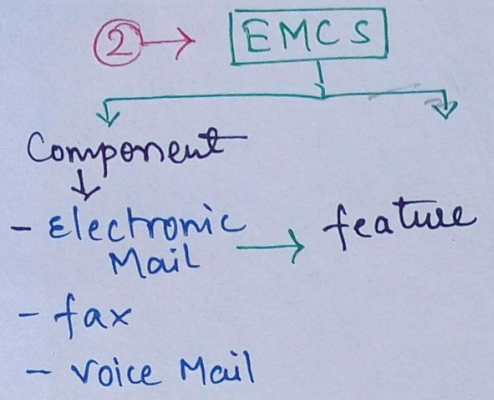 ② → EMCS
Component
- Electronic → feature
Mail
- fax
- Voice Mail